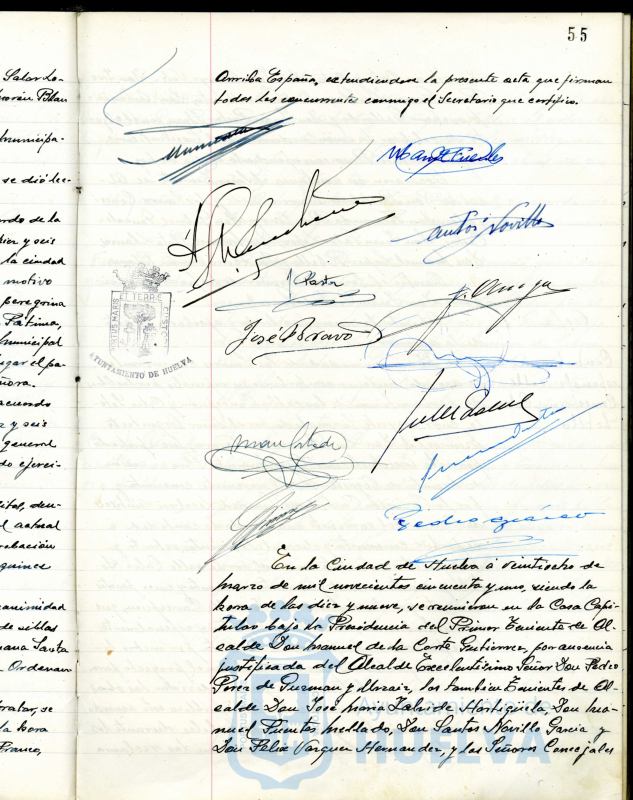 55
Salas Lo-
Blan
municipa-
se dió lec-
erdo de la
diez y seis
la ciudad
motivo
peregrina
Fátima,
Municipal
lugar el pa-
ñora.
acuerdo
z y seis
general
do ejerci-
l actual
robación
quince
animidad
de sillas
mana Santa
Ordenan
tratar, se
la hora
Franco,
Arriba España, extendiendose la presente acta que firman
todos los concurrentes conmigo el Secretario que certifico.
J. Pastor
José Bravo
PORTUS MARIS ET TERRE CUSTO
AYUNTAMIENTO DE HUELVA
En la Ciudad de Huelva á veintiocho de
marzo de mil novecientos cincuenta y uno, siendo la
hora de las diez y nueve, se reunieron en la Casa Capi-
tular bajo la Presidencia del Primer Teniente de Al-
calde Don Manuel de la Corte Gutierrez, por ausencia
justificada del Alcalde Excelentisimo Señor Don Pedro
Perez de Guzman y Urzaiz, los tambien Tenientes de Al-
calde Don José Maria Zalvide Hortigüela, Don Ma-
nuel Fuentes Mellado, Don Santos Novillo Garcia y
Don Felix Vazquez Hernandez, y los Señores Concejales
HUELVA